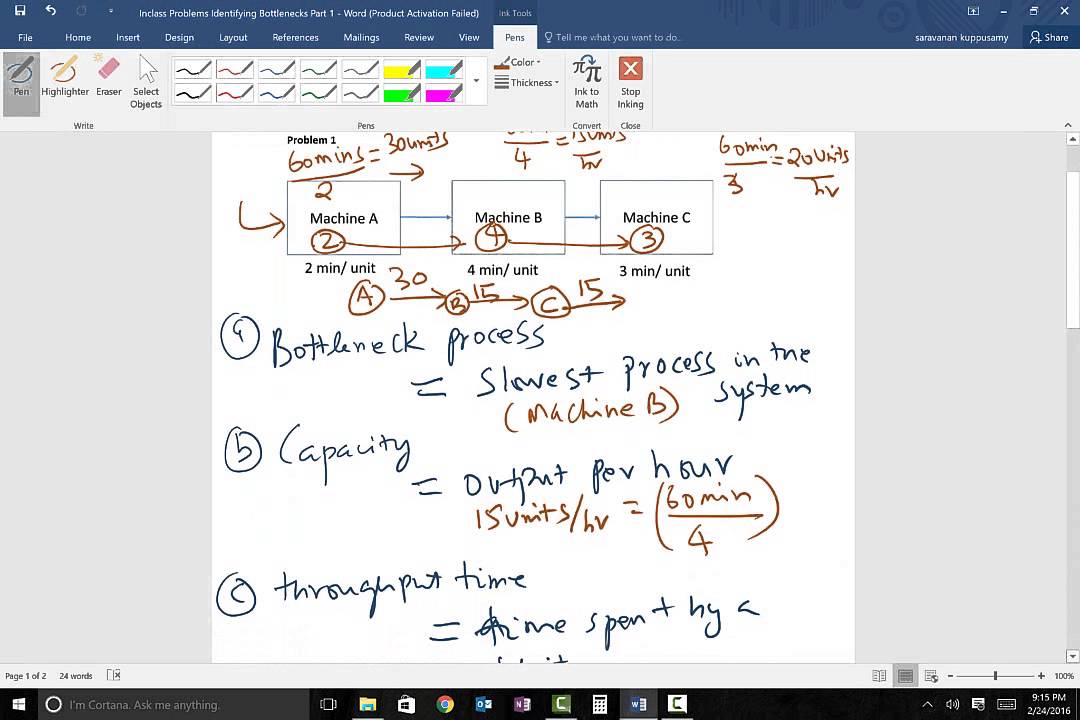 Inclass Problems Identifying Bottlenecks Part 1 - Word (Product Activation Failed)
Ink Tools
File Home Insert Design Layout References Mailings Review View Pens Tell me what you want to do...
saravanan kuppusamy Share
Pen Highlighter Eraser Select Objects
Color
Thickness
Ink to Math
Stop Inking
Write Pens Convert Close
Problem 1
60mins = 30units
2
4 = 15units
hr
60min = 20units
3 hr
Machine A Machine B Machine C
2 4 3
2 min/ unit 4 min/ unit 3 min/ unit
A 30 B 15 C 15
a Bottleneck process
= Slowest process in the system
(Machine B)
b Capacity
= output per hour
15units/hr = (60min
4)
c throughput time
= time spent by a
Page 1 of 2 24 words
100%
I'm Cortana. Ask me anything.
9:15 PM
2/24/2016